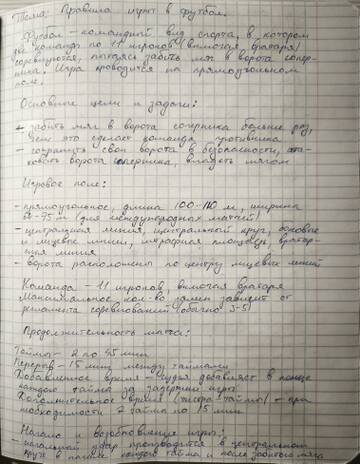 Тема: Правила игры в футбол.
Футбол – командный вид спорта, в котором
две команды по 11 игроков (включая вратаря)
соревнуются, пытаясь забить мяч в ворота сопер-
ника. Игра проводится на прямоугольном
поле.
Основные цели и задачи:
- забить мяч в ворота соперника больше раз,
чем это сделает команда противника
- сохранить свои ворота в безопасности, ата-
ковать ворота соперника, владеть мячом
Игровое поле:
- прямоугольное, длина 100-110 м, ширина
-75 м (для международных матчей)
- центральная линия, центральный круг, боковые
и лицевые линии, штрафная площадь, вратар-
ская линия
- ворота расположены по центру лицевых линий
Команда – 11 игроков, включая вратаря
Максимальное кол-во замен зависит от
регламента соревнований (обычно 3-5)
Продолжительность матча:
Таймы – 2 по 45 мин
Перерыв – 15 мин между таймами
Добавленное время – судья добавляет в конце
каждого тайма за задержки игры
Дополнительное время (экстра-таймы) – при
необходимости 2 тайма по 15 мин
Начало и возобновление игры:
- начальный удар производится в центральном
круге в начале каждого тайма и после забитого мяча